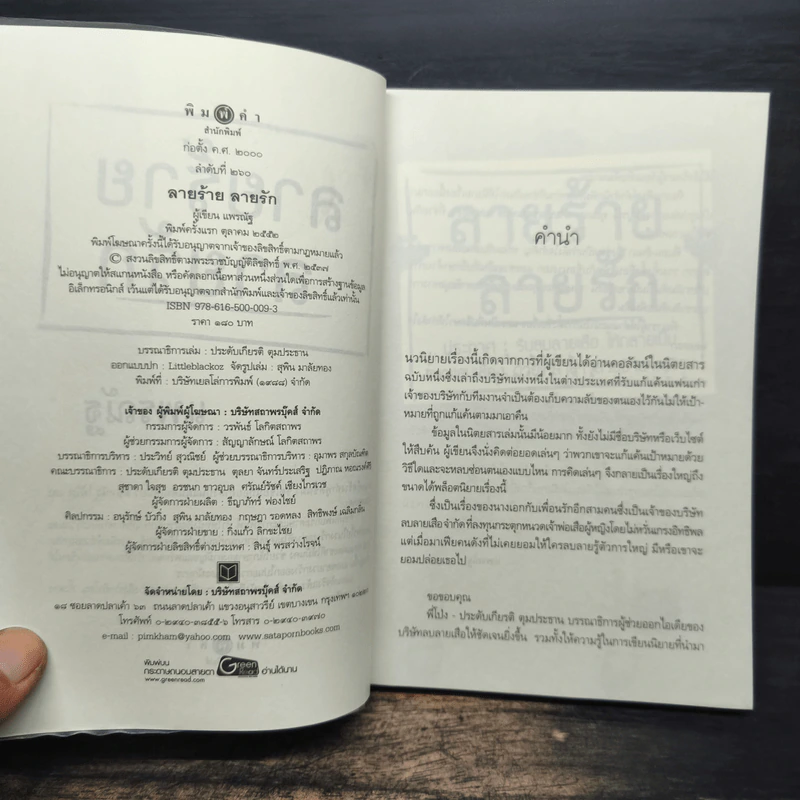 พิมพ์คำ
สำนักพิมพ์
ก่อตั้ง ค.ศ. ๒๐๐๐
ลำดับที่ ๒๖๐
ลายร้าย ลายรัก
ผู้เขียน แพรณัฐ
พิมพ์ครั้งแรก ตุลาคม ๒๕๕๒
พิมพ์โฆษณาครั้งนี้ได้รับอนุญาตจากเจ้าของลิขสิทธิ์ตามกฎหมายแล้ว
© สงวนลิขสิทธิ์ตามพระราชบัญญัติลิขสิทธิ์ พ.ศ. ๒๕๓๗
ไม่อนุญาตให้สแกนหนังสือ หรือคัดลอกเนื้อหาส่วนหนึ่งส่วนใดเพื่อการสร้างฐานข้อมูล
อิเล็กทรอนิกส์ เว้นแต่ได้รับอนุญาตจากสำนักพิมพ์และเจ้าของลิขสิทธิ์แล้วเท่านั้น
ISBN 978-616-500-009-3
ราคา ๑๘๐ บาท
บรรณาธิการเล่ม : ประดับเกียรติ ตุมประธาน
ออกแบบปก : Littleblackoz จัดรูปเล่ม : สุพิน มาลัยทอง
พิมพ์ที่ : บริษัทเยลโล่การพิมพ์ (๑๙๘๘) จำกัด
เจ้าของ ผู้พิมพ์ผู้โฆษณา : บริษัทสถาพรบุ๊คส์ จำกัด
กรรมการผู้จัดการ : วรพันธ์ โลกิตสถาพร
ผู้ช่วยกรรมการผู้จัดการ : สัญญาลักษณ์ โลกิตสถาพร
บรรณาธิการบริหาร : ประวิทย์ สุวณิชย์ ผู้ช่วยบรรณาธิการบริหาร : อุมาพร สกุลบัณฑิต
คณะบรรณาธิการ : ประดับเกียรติ ตุมประธาน ตุลยา จันทร์ประเสริฐ ปฏิภาณ
สุชาดา ใจสุข อรชนก ขาวอุบล ศรัณย์รัชต์ เชียงไกรเวช
ผู้จัดการฝ่ายผลิต : ธีญาภัทร์ ฟองไชย์
ศิลปกรรม : อนุรักษ์ บัวกิ่ง สุพิน มาลัยทอง กฤษฎา รอดหลง สิทธิพงษ์ เฉลิมกลิ่น
ผู้จัดการฝ่ายขาย : กิ่งแก้ว ลิกขะไชย
ผู้จัดการฝ่ายลิขสิทธิ์ต่างประเทศ : สินธุ์ พรสว่างโรจน์
จัดจำหน่ายโดย : บริษัทสถาพรบุ๊คส์ จำกัด
๑๘ ซอยลาดปลาเค้า ๖๓ ถนนลาดปลาเค้า แขวงอนุสาวรีย์ เขตบางเขน กรุงเทพฯ
โทรศัพท์ ๐-๒๙๔๐-๓๘๕๕-๖ โทรสาร ๐-๒๙๔๐-๓๙๗๐
e-mail : pimkham@yahoo.com www.satapornbooks.com
พิมพ์บน
กระดาษถนอมสายตา Green Read อ่านได้นาน
www.greenread.com
คำนำ
นวนิยายเรื่องนี้เกิดจากการที่ผู้เขียนได้อ่านคอลัมน์ในนิตยสาร
ฉบับหนึ่งซึ่งเล่าถึงบริษัทแห่งหนึ่งในต่างประเทศที่รับแก้แค้นแฟนเก่า
เจ้าของบริษัทกับทีมงานจำเป็นต้องเก็บความลับของตนเองไว้กันไม่ให้เป้า-
หมายที่ถูกแก้แค้นตามมาเอาคืน
ข้อมูลในนิตยสารเล่มนั้นมีน้อยมาก ทั้งยังไม่มีชื่อบริษัทหรือเว็บไซต์
ให้สืบค้น ผู้เขียนจึงนั่งคิดต่อยอดเล่นๆ ว่าพวกเขาจะแก้แค้นเป้าหมายด้วย
วิธีใดและจะหลบซ่อนตนเองแบบไหน การคิดเล่นๆ จึงกลายเป็นเรื่องใหญ่ถึง
ขนาดได้พล็อตนิยายเรื่องนี้
ซึ่งเป็นเรื่องของนางเอกกับเพื่อนรักอีกสามคนซึ่งเป็นเจ้าของบริษัท
ลบลายเสือจำกัดที่ลงทุนกระตุกหนวดเจ้าพ่อเสือผู้หญิงโดยไม่หวั่นเกรงอิทธิพล
แต่เมื่อมาเฟียคนดังที่ไม่เคยยอมให้ใครลบลายรู้ตัวการใหญ่ มีหรือเขาจะ
ยอมปล่อยเธอไป
ขอขอบคุณ
พี่โป่ง - ประดับเกียรติ ตุมประธาน บรรณาธิการผู้ช่วยออกไอเดียของ
บริษัทลบลายเสือให้ชัดเจนยิ่งขึ้น รวมทั้งให้ความรู้ในการเขียนนิยายที่นำมา